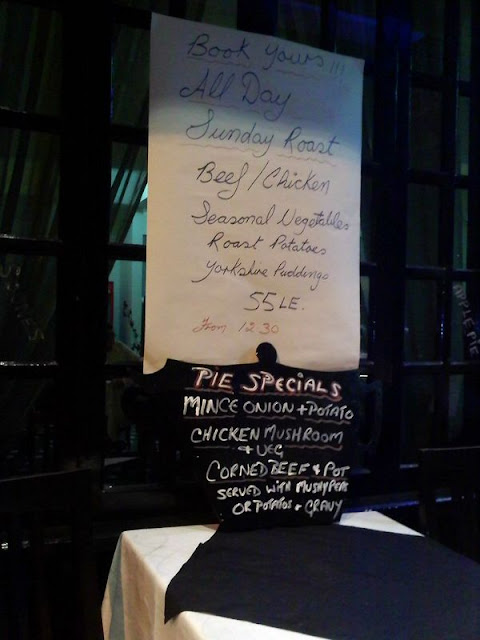 Book Yours !!!
All Day
Sunday Roast
Beef/Chicken
Seasonal Vegetables
Roast Potatoes
Yorkshire Puddings
55 LE.
From 12.30
PIE SPECIALS
MINCE ONION + POTATO
CHICKEN MUSHROOM
+ VEG
CORNED BEEF + POT
SERVED WITH MUSHY PEAS
OR POTATOS + GRAVY
APPLE PIE